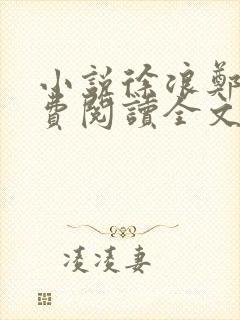 小說徐浪鄭
費閱讀全文
凌凌妻